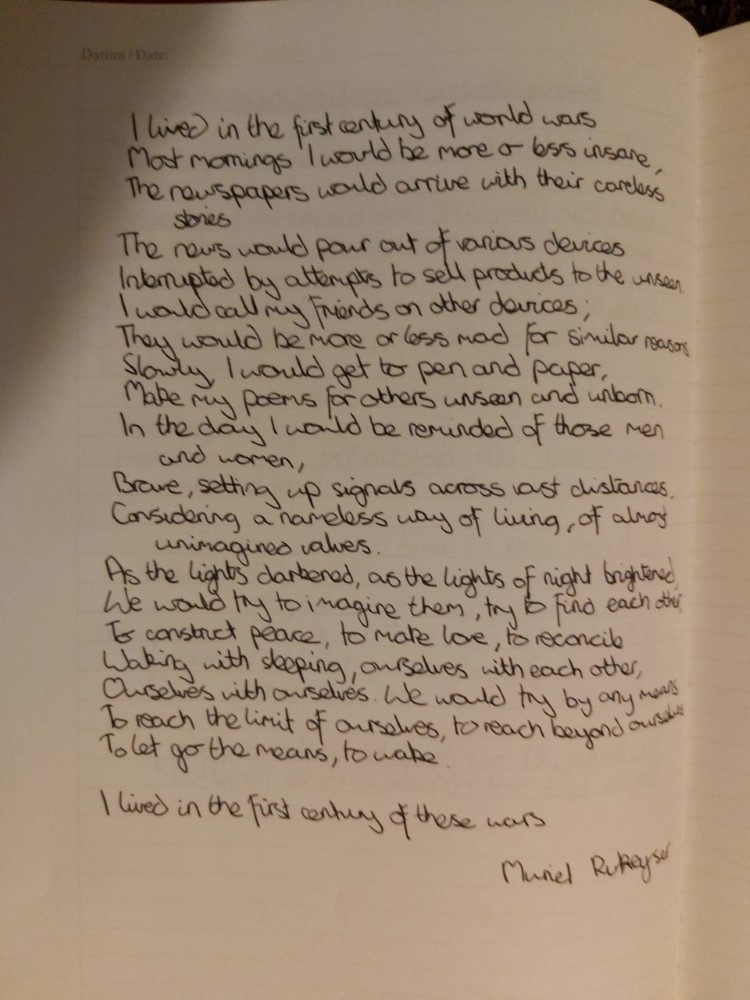 Datum / Date:
I lived in the first century of world wars
Most mornings I would be more or less insane,
The newspapers would arrive with their careless
stories
The news would pour out of various devices
Interrupted by attempts to sell products to the unseen.
I would call my friends on other devices;
They would be more or less mad for similar reasons
Slowly, I would get to pen and paper,
Make my poems for others unseen and unborn.
In the day I would be reminded of those men
and women,
Brave, setting up signals across vast distances.
Considering a nameless way of living, of almost
unimagined values.
As the lights darkened, as the lights of night brightened,
We would try to imagine them, try to find each other,
To construct peace, to make love, to reconcile
Waking with sleeping, ourselves with each other,
Ourselves with ourselves. We would try by any means
To reach the limit of ourselves, to reach beyond ourselves
To let go the means, to wake.
I lived in the first century of these wars
Muriel Rukeyser